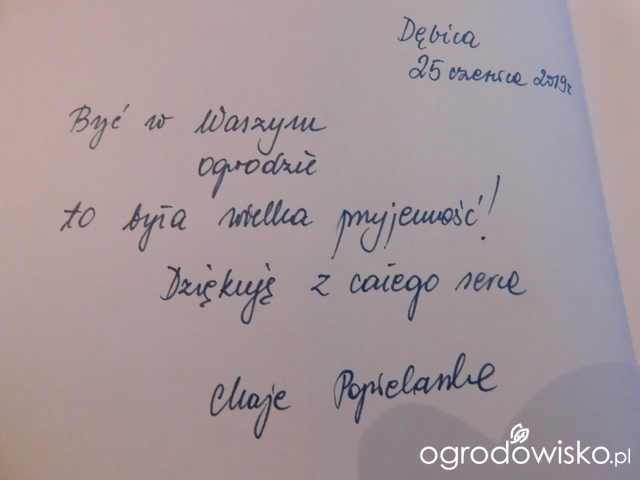 Dębica
25 czerwca 2019r
Być w Waszym
ogrodzie
to była wielka przyjemność!
Dziękuję z całego serca
Popielarska
ogrodowisko.pl